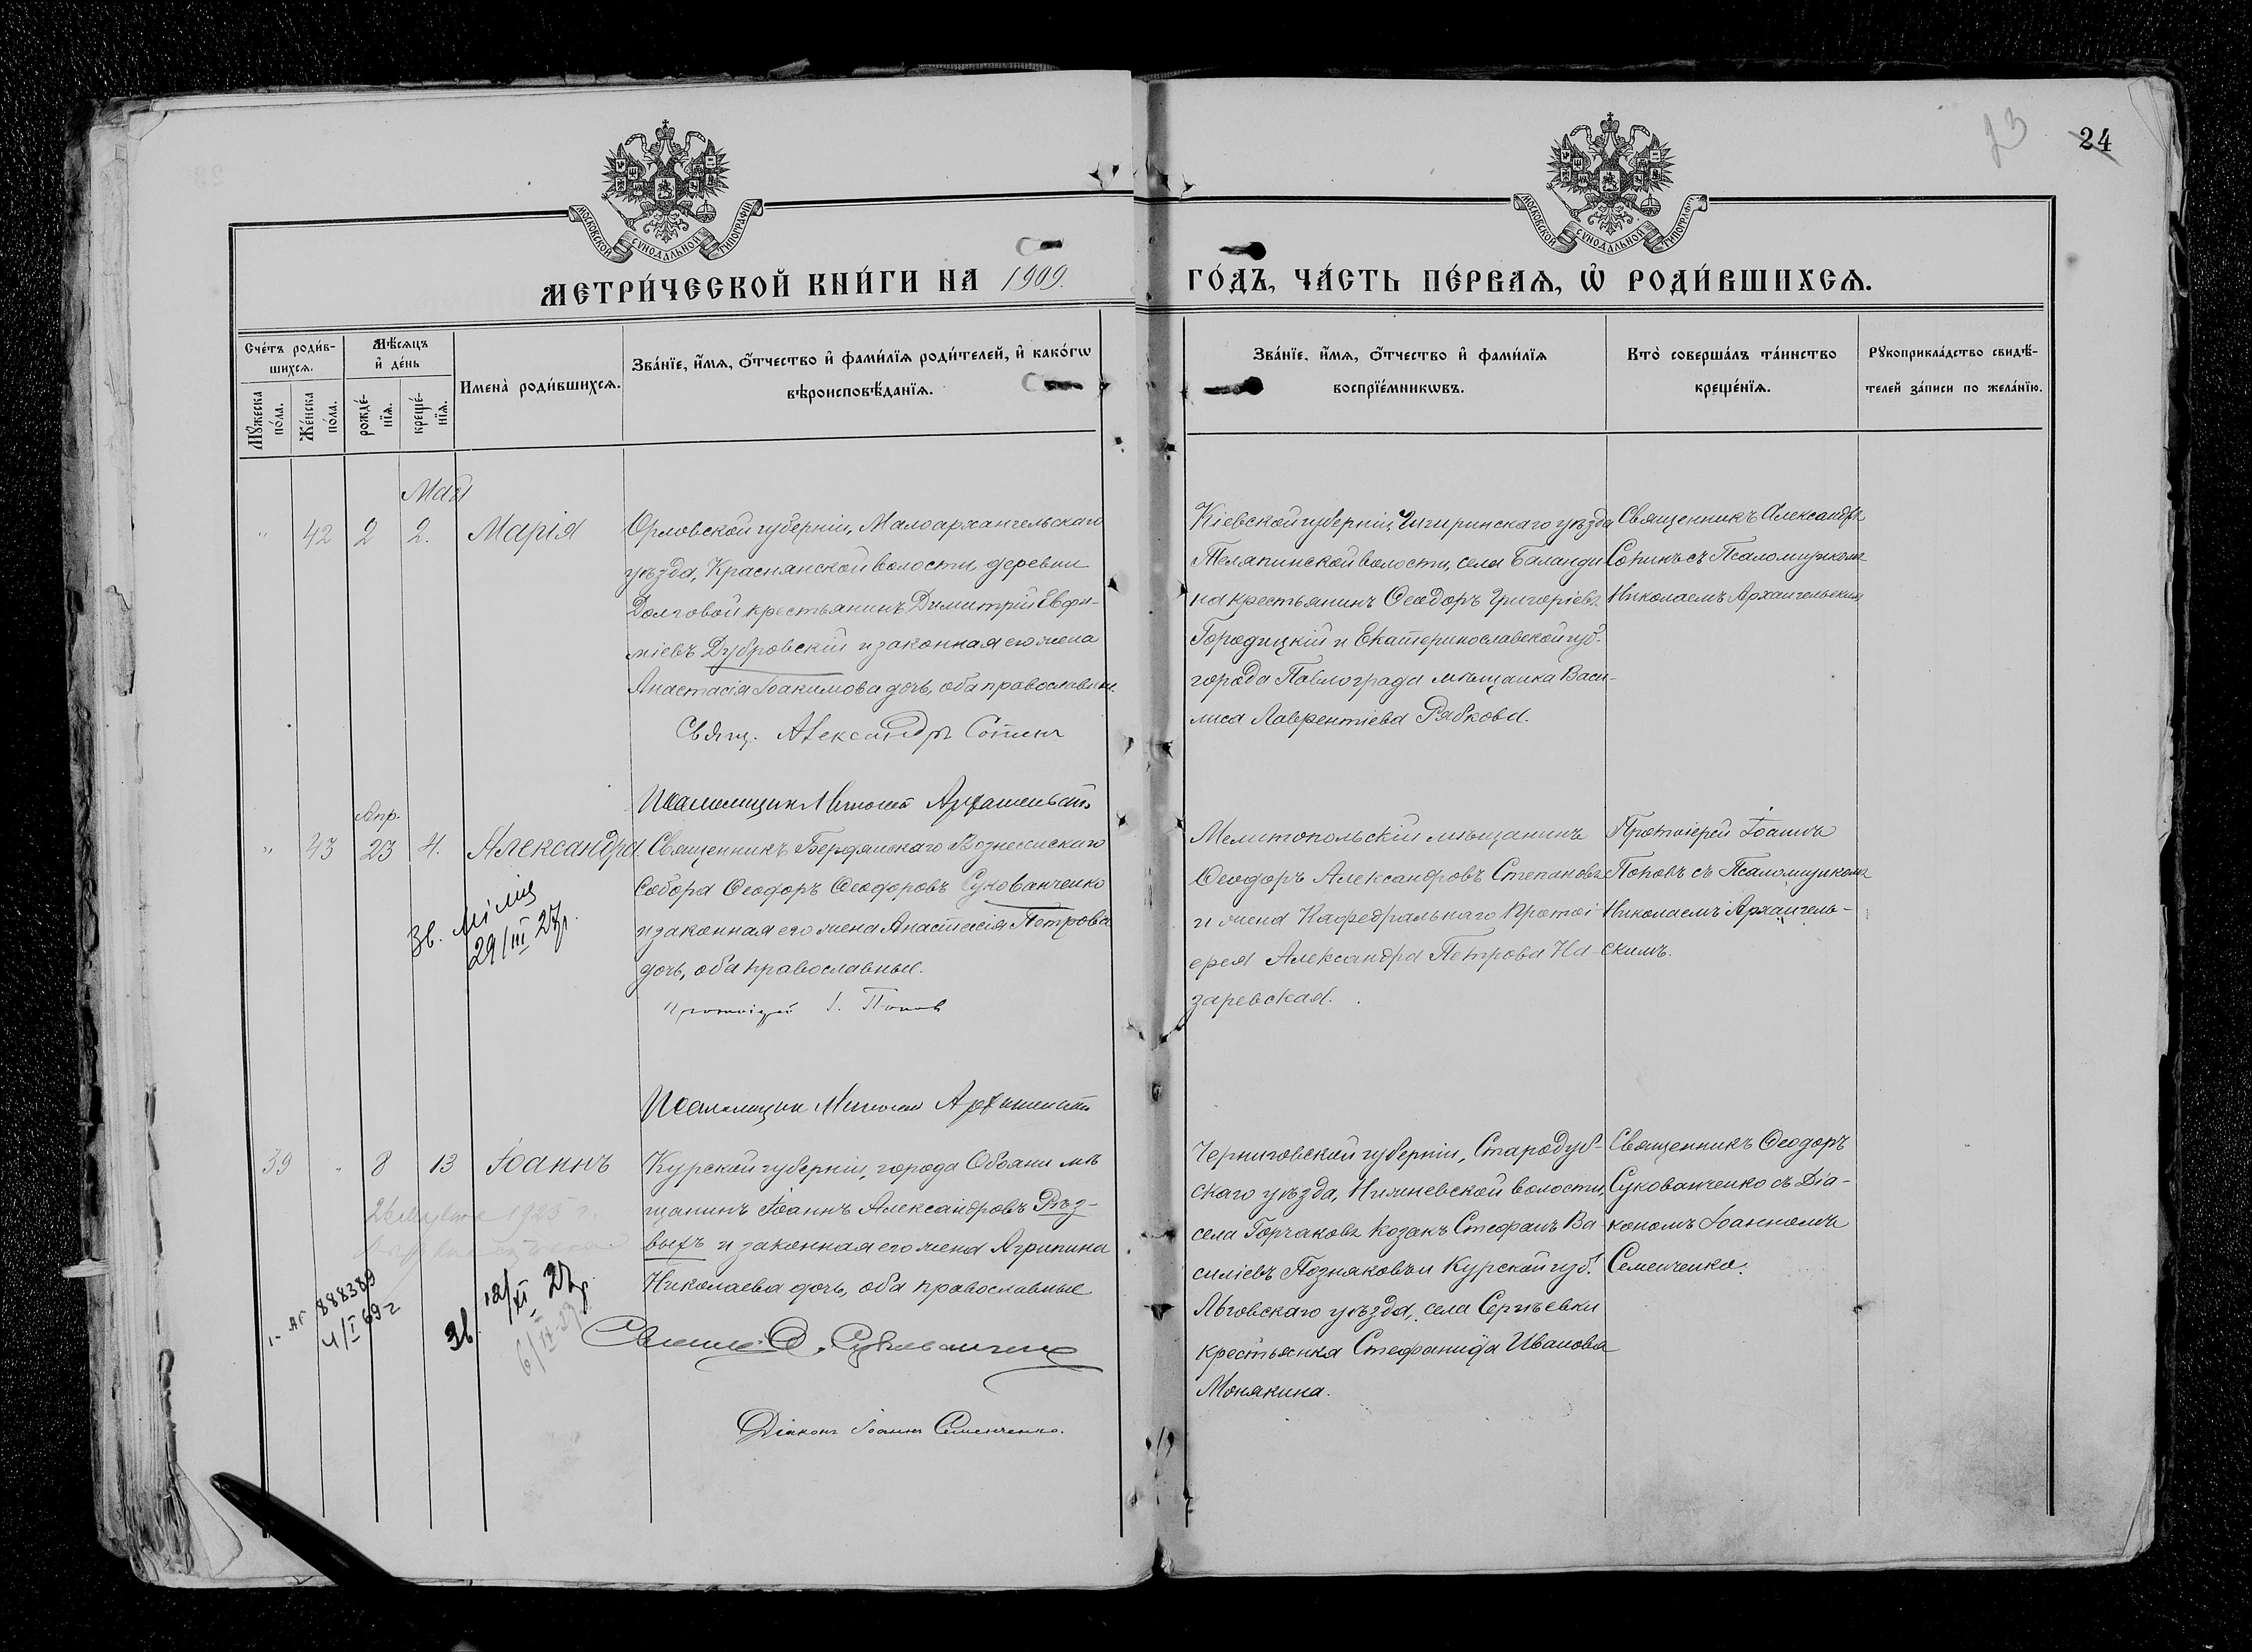 23
24
МОСКОВСКОЙ СѴНОДАЛЬНОЙ ТИПОГРАФІИ
МОСКОВСКОЙ СѴНОДАЛЬНОЙ ТИПОГРАФІИ
МЕТРИ́ЧЕСКОЙ КНИ́ГИ НА 1909.
ГО́ДЪ, ЧА́СТЬ ПЕ́РВАѦ, Ѡ҆ РОДИ́ВШИХСѦ.
Сче́тъ роди́в-
шихсѧ.
Мꙋ́жеска по́ла.
Же́нска по́ла.
Мѣ́сѧцъ
и҆ де́нь
рожде́-
нїѧ.
креще́-
нїѧ.
Имена̀ роди́вшихсѧ.
Зва́нїе, и҆́мѧ, ѻ҆́тчество и҆ фами́лїѧ роди́телей, и҆ како́гѡ
вѣроисповѣ́данїѧ.
Зва́нїе, и҆́мѧ, ѻ҆́тчество и҆ фами́лїѧ
воспрїе́мникѡвъ.
Кто̀ соверша́лъ та́инство
креще́нїѧ.
Рꙋкоприкла́дство свидѣ́-
телей за́писи по жела́нїю.
Мая
" 42 2 2. Марія
Орловской губерніи, Малоархангельскаго
уѣзда, Краснянской волости деревни
Долговой крестьянинъ Димитрій Евфи-
міевъ Дубровскій и законная его жена
Анастасія Іоакимова дочь, оба православные.
Свящ. Александръ Сопинъ
Псаломщикъ Николай Архангельскій
Кіевской губерніи, Чигиринскаго уѣзда
Телепинской волости, села Баланди
на крестьянинъ Ѳеодоръ Григоріевъ
Городицкій и Екатеринославской губ.
города Павлограда мѣщанка Васи-
лиса Лаврентіева Рябкова.
Священникъ Александръ
Сопинъ съ Псаломщикомъ
Николаемъ Архангельскимъ
Апр.
" 43 23 4. Александра
Священникъ Бердянскаго Вознесенскаго
Собора Ѳеодоръ Ѳеодоровъ Сукованченко
и законная его жена Анастасія Петрова
дочь, оба православные.
Протоіерей І. Поповъ
Псаломщикъ Николай Архангельскій
29/III 27р.
Мелитопольскій мѣщанинъ
Ѳеодоръ Александровъ Степановъ
и жена Кафедральнаго Протоі-
ерея Александра Петрова На-
заревская.
Протоіерей Іоаннъ
Поповъ съ Псаломщикомъ
Николаемъ Архангель-
скимъ.
39 " 8 13 Іоаннъ
Курской губерніи, города Обояни мѣ
щанинъ Іоаннъ Александровъ Рѣз-
выхъ и законная его жена Агрипина
Николаева дочь, оба православные
Діаконъ Іоаннъ Семенченко.
1925 г.
888389
Зв. 12/XI 27р.
Черниговской губерніи, Стародуб-
скаго уѣзда, Нижневской волости,
села Горчакова козакъ Стефанъ Ва
силіевъ Позняковъ и Курской губ.
Льговскаго уѣзда, села Сергѣевки
крестьянка Стефанида Иванова
Монякина.
Священникъ Ѳеодоръ
Сукованченко съ Діа-
кономъ Іоанномъ
Семенченко.